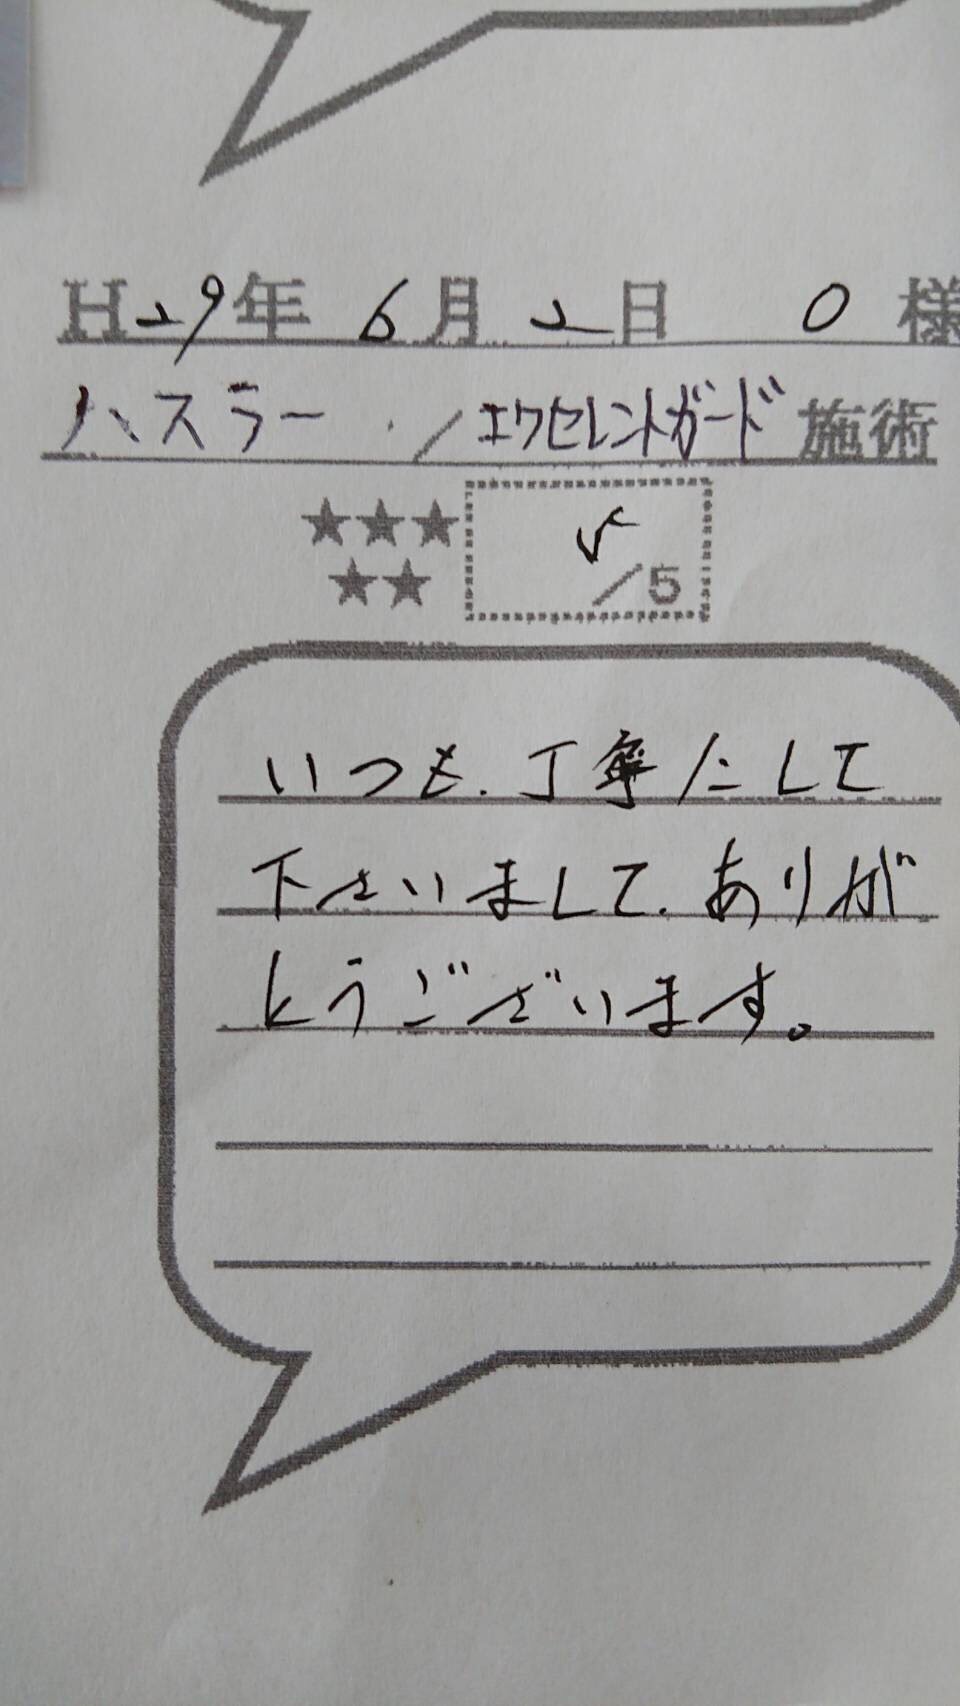 H29年 6月 2日 O 様
ハスラー ／エクセレントガード 施術
★★★
★★
5/5
いつも、丁寧にして
下さいまして、ありが
とうございます。